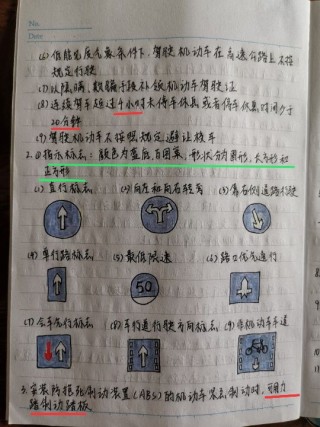 No.
Date
(6) 低能见度气象条件下,驾驶机动车在高速公路上不按
规定行驶
(7) 以隐瞒、欺骗手段补领机动车驾驶证
(8) 连续驾车超过4小时未停车休息或者停车休息时间少于
20分钟
(9) 驾驶机动车不按照规定避让校车
2. ①指示标志:颜色为蓝底、白图案,形状分为圆形、长方形和
正方形
(1) 直行标志 (2) 向左和向右转弯 (3) 靠右侧道路行驶
(4) 单行路标志 (5) 最低限速 (6) 路口优先通行
50
(7) 会车先行标志 (8) 车行道行驶方向标志 (9) 非机动车车道
3. 安装防抱死制动装置(ABS)的机动车紧急制动时,可用力
踏制动踏板